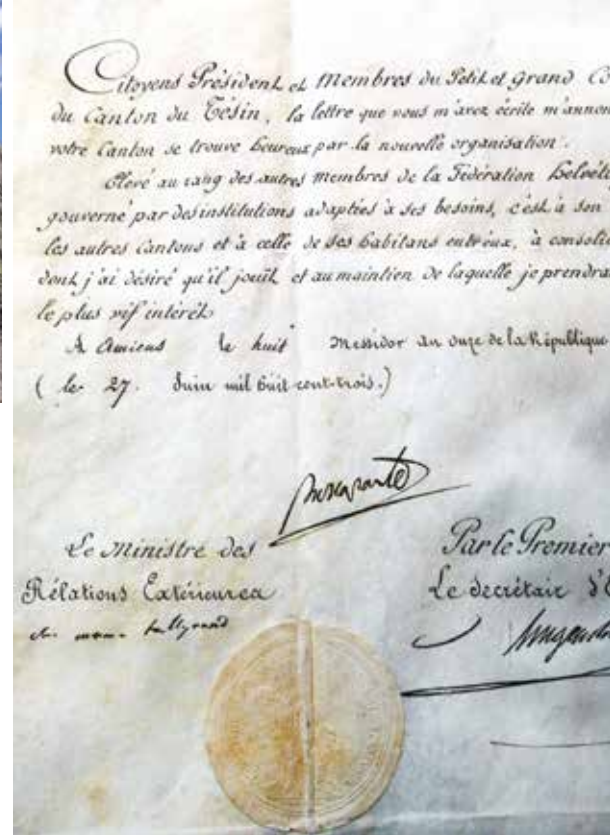 Citoyens Président et Membres du Petit et Grand Co
du Canton du Tésin, la lettre que vous m'avez écrite m'annon
votre Canton se trouve heureux par la nouvelle organisation.
Élevé au rang des autres membres de la Fédération helvéti
gouverné par des institutions adaptées à ses besoins, c'est à son
les autres Cantons et à celle de ses habitans entr'eux, à consolid
dont j'ai désiré qu'il jouït et au maintien de laquelle je prendrai
le plus vif intérêt
A Amiens le huit Messidor an onze de la République
( le 27. Juin mil huit cent-trois.)
Bonaparte
Le Ministre des
Rélations Extérieures
ch. mau. talleyrand
Par le Premier
Le secrétair d'